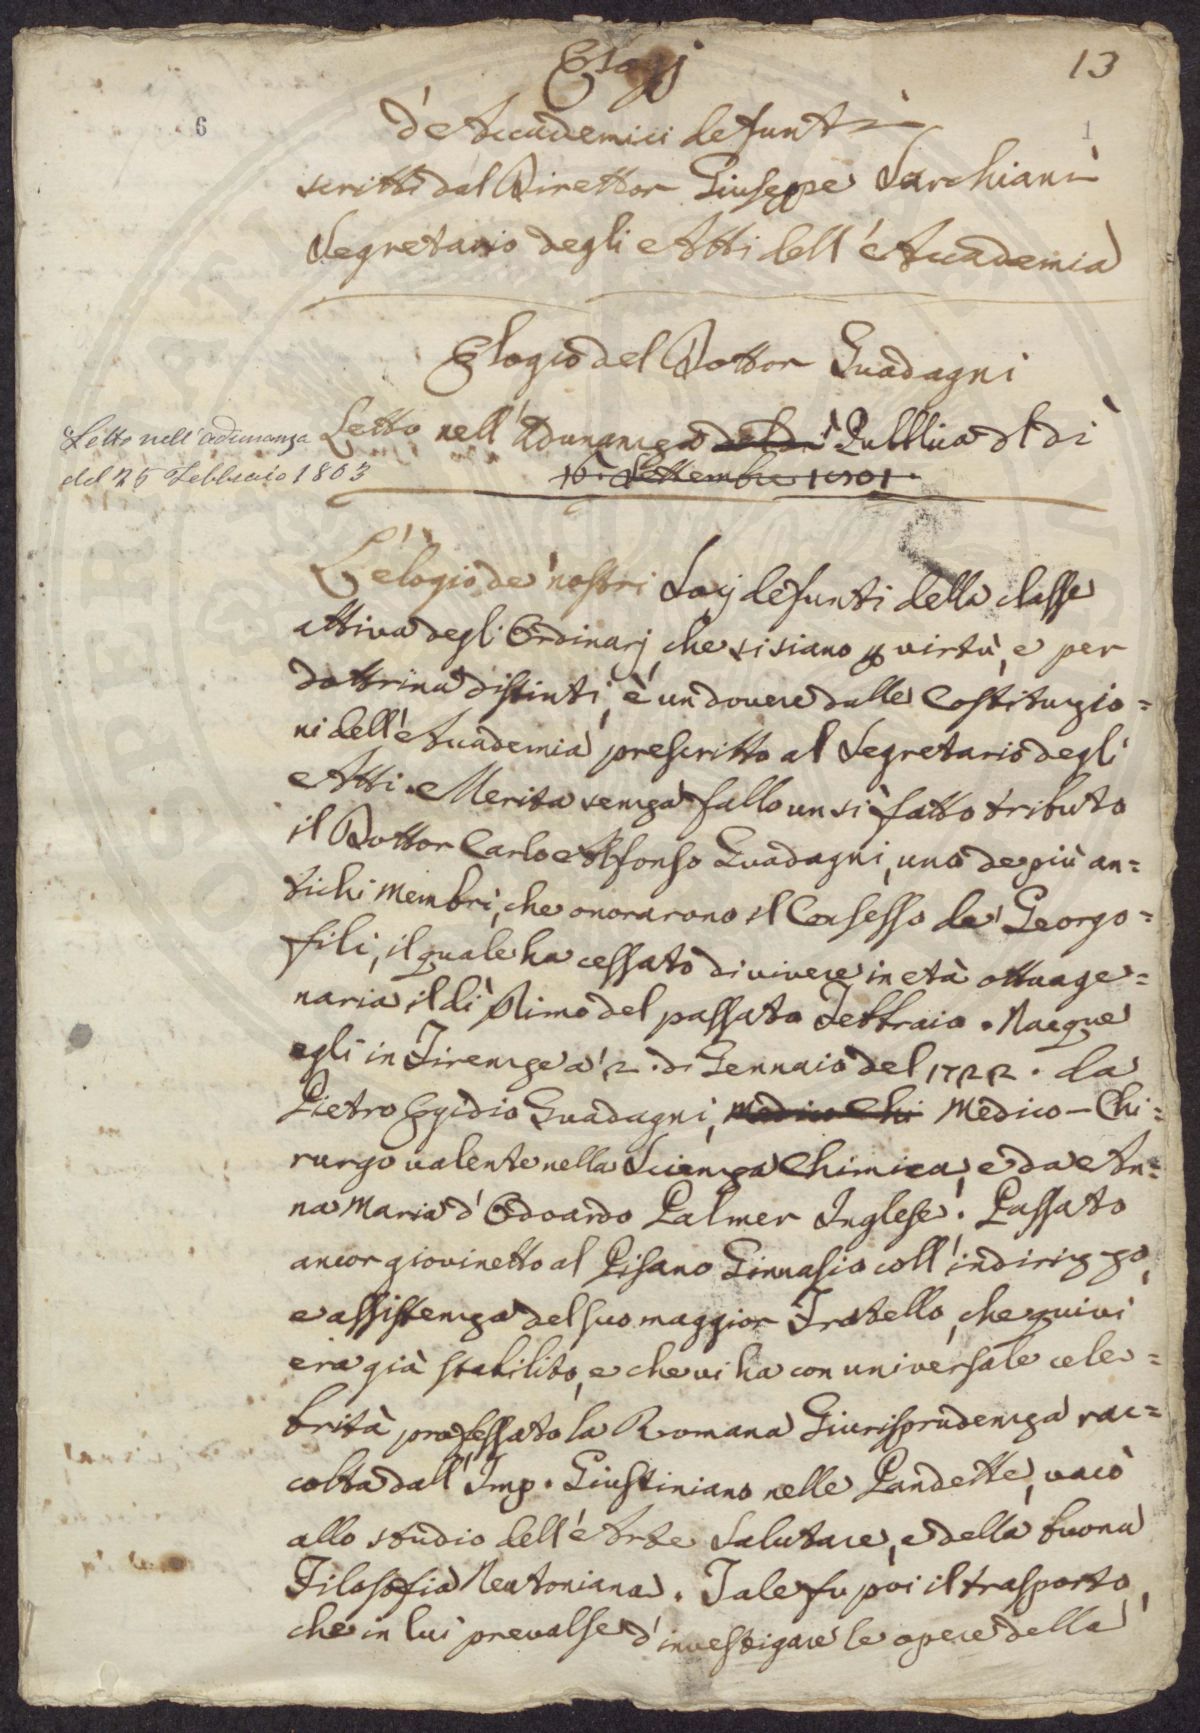 Elogj
13
6
1
d'Accademici defunti
scritti dal Direttor Giuseppe Sarchiani
Segretario degli Atti dell'Accademia
Elogio del Dottor Guadagni
Letto nell'adunanza
del 25 Febbraio 1803
Letto nell'Adunanza del dì Pubblica del dì
16. Settembre 1801.
L'elogio de' nostri Socj defunti della classe
attiva degli Ordinarj, che si siano p virtù, e per
dottrina distinti, è un dovere dalle Costituzio=
ni dell'Accademia prescritto al Segretario degli
Atti. Merita senza fallo un sì fatto tributo
il Dottor Carlo Alfonso Guadagni, uno de più an=
tichi Membri, che onorarono il Consesso de' Georgo=
fili, il quale ha cessato di vivere in età ottuage=
naria il dì Primo del passato Febbraio. Nacque
egli in Firenze a' 2. di Gennaio del 1722. da
Pietro Egidio Guadagni, Medico Chi Medico-Chi=
rurgo valente nella Scienza Chimica, e da An=
na Maria d'Odoardo Palmer Inglese. Passato
ancor giovinetto al Pisano Ginnasio coll'indirizzo,
e assistenza del suo maggior Fratello, che quivi
era già stabilito, e che vi ha con universale cele=
brità professato la Romana Giurisprudenza rac=
colta dall'Imp. Giustiniano nelle Pandette, vacò
allo studio dell'Arte Salutare, e della buona
Filosofia Neutoniana. Tale fu poi il trasporto,
che in lui prevalse d'investigare le opere della